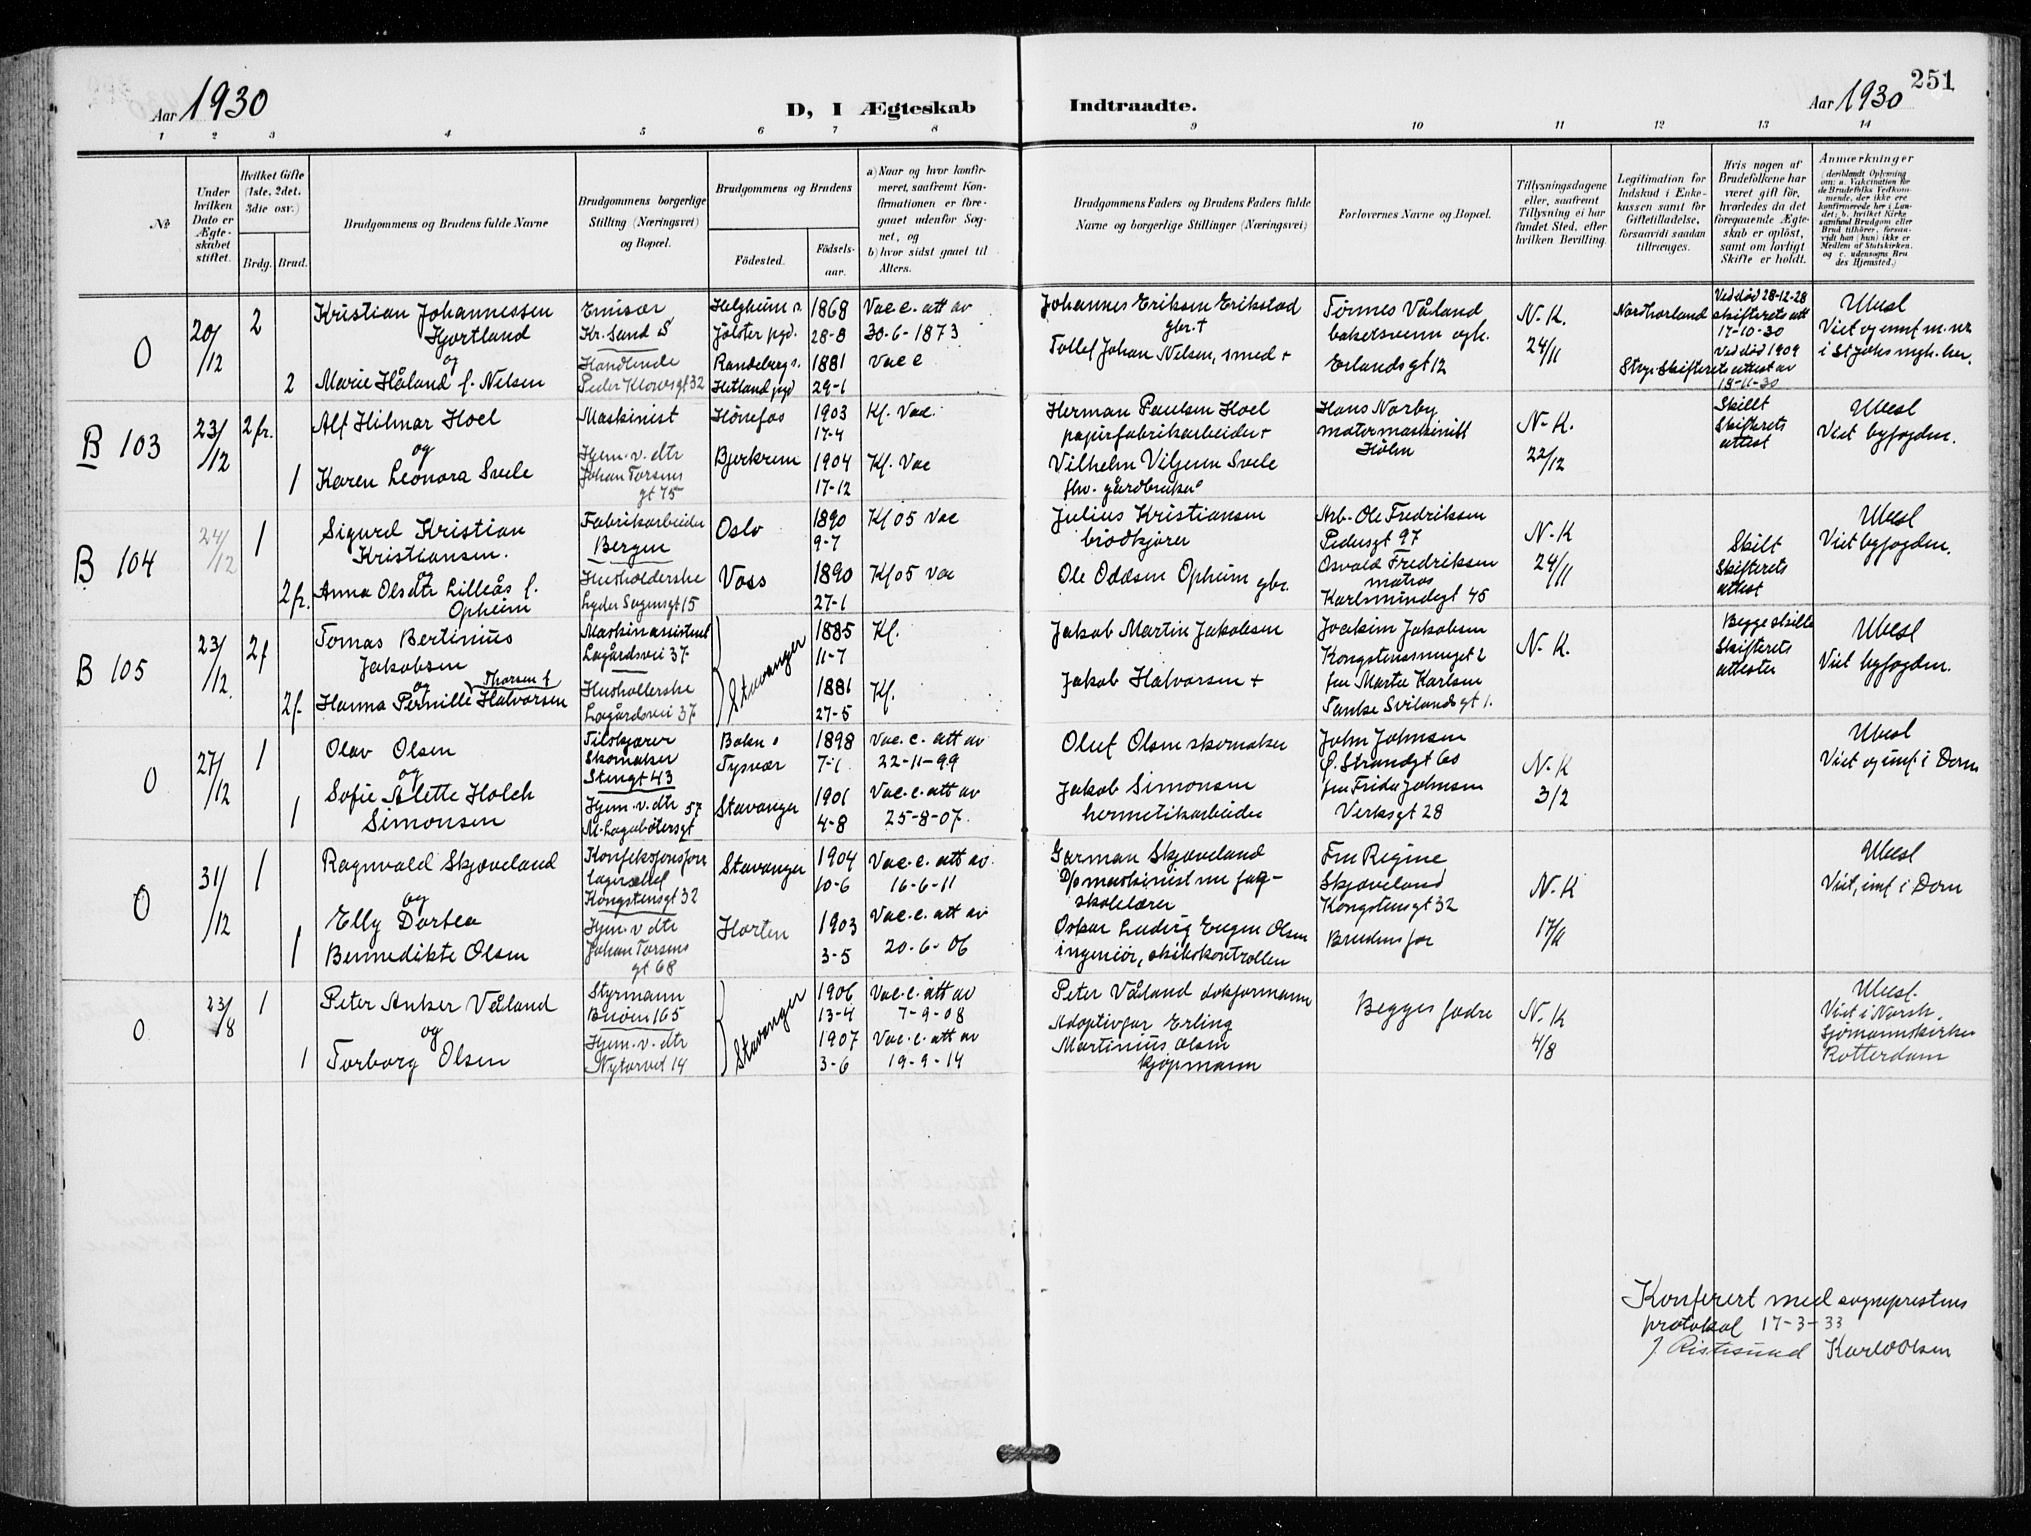 251
Aar 1930
D, I Ægteskab Indtraadte.
Aar 1930
1 2 3 4 5 6 7 8 9 10 11 12 13 14
No
Under hvilken Dato er Ægteskabet stiftet.
Hvilket Gifte (1ste, 2det. 3die osv.)
Brdg. Brud.
Brudgommens og Brudens fulde Navne
Brudgommens borgerlige Stilling (Næringsvei) og Bopæl.
Brudgommens og Brudens
Fødested. Fødselsaar.
a) Naar og hvor konfirmeret, saafremt Konfirmationen er foregaaet udenfor Sognet, og
b) hvor sidst gaaet til Alters.
Brudgommens Faders og Brudens Faders fulde Navne og borgerlige Stillinger (Næringsvei)
Forlovernes Navne og Bopæl.
Tillysningsdagene eller, saafremt Tillysning ei har fundet Sted, efter hvilken Bevilling.
Legitimation for Indskud i Enkekassen samt for Giftetilladelse, forsaavidt saadan tiltrænges.
Hvis nogen af Brudefolkene har været gift før, hvorledes da det foregaaende Ægteskab er opløst, samt om lovligt Skifte er holdt.
Anmærkninger
(deriblandt Oplysning om: a. Vakcination for de Brudefolks Vedkommende, der ikke ere konfirmerede her i Landet; b. hvilket Kirkesamfund Brudgom eller Brud tilhører, forsaavidt han (hun) ikke er Medlem af Statskirken, og c. udensogns Brudes Hjemsted.)
O 20/12 2
Kristian Johannessen
Hjortland
og
2 Marie Håland f. Nelsen
Emisær
Kr. Sand S
Handlende
Peder Klowsgt 32
Helgheim s.
Jølster pgd.
Randeberg s.
Hetland pgd
1868
28-8
1881
29-1
Vac c. att av
30-6-1873
Vac c
Johannes Eriksen Erikstad
gbr. +
Tollef Johan Nelsen, smed +
Tønnes Våland
bakersvenn ogk.
Erlandsgt 12
N-K.
24/11
Nordhorland
Ved død 28-12-28
skifterets att
17-10-30
Ved død 1909
Stryr Skifterets attest av
18-11-30
Ubesl
Viet og innf m. nr
i St Johs mgh. her.
B 103 23/12 2 fr.
Alf Hilmar Hoel
og
1 Karen Leonora Svele
Maskinist
Hjem. v. dtr
Johan Torsens
gt 75
Hønefos
Bjerkreim
1903
17-4
1904
17-12
Kf. Vac.
Kf. Vac
Herman Paulsen Hoel
papirfabrikarbeider +
Vilhelm Viljesen Svele
fhv. gårdbruker
Hans Norby
motormaskinist
Hølen
N-K.
22/12
Skillt
Skifterets
attest
Ubesl
Viet byfogden.
B 104 24/12 1
Sigurd Kristian
Kristiansen.
og
2 fr. Anna Olsdtr Lilleås f.
Opheim
Fabrikarbeider
Bergen
Husholderske
Lyder Sagensgt 15
Oslo
Voss
1890
9-7
1890
27-1
Kf 05 Vac
Kf 05 Vac
Julius Kristiansen
brødkjører
Ole Oddsen Opheim gbr.
Arb. Ole Fredriksen
Pedersgt 97
Osvald Fredriksen
matros
Karlsmindegt 45
N-K
24/11
Skilt
Skifterets
attest
Ubesl
Viet byfogden.
B 105 23/12. 2 f
Tomas Bertinius
Jakobsen
og Thorsen f
2 f. Hanna Pernille Halvorsen
Maskinassistent
Lagårdsvei 37
Husholderske
Lagårdsvei 37
Stavanger
1885
11-7
1881
27-5
Kf.
Kf.
Jakob Martin Jakobsen
Jakob Halvorsen +
Joakim Jakobsen
Kongstensmuget 2
fru Marta Karlsen
Tanke Svilandsgt 1.
N-K.
Begge skilte
Skifterets
attester
Ubesl
Viet byfogden.
O 27/12 1
Olav Olsen
og
Sofie Alette Holch
1 Simonsen
Skomaker
Stengt 43
Hjem. v. dtr 57
M. Lagabøtersgt
Bokn s
Tysvær
Stavanger
1898
7-1
1901
4-8
Vac. c. att av
22-11-99
Vac. c. att av
25-8-07.
Oluf Olsen skomaker
Jakob Simonsen
hermetikarbeider
John Johnsen
Ø. Strandgt 60
fru Frida Johnsen
Verksgt 28
N-K
3/2
Ubesl
Viet og innf. i Dom
O 31/12 1
Ragnvald Skjæveland
og
Elly Dortea
1 Bennedikte Olsen
Konfeksjonsforr
lagersjef
Kongstensgt 32
Hjem. v. dtr
Johan Torsens
gt 68
Stavanger
Horten
1904
10-6
1903
3-5
Vac. c. att av.
16-6-11
Vac. c. att av
20-6-06
Garman Skjæveland
D/s maskinist nu fag-
skolelærer
Oskar Ludvig Eugen Olsen
ingeniør, skibskontrollen
Fru Regine
Skjæveland
Kongstensgt 32
Brudens far
N-K
17/11
Ubesl
Viet, innf i Dom
O 23/8 1
Peter Anker Våland
og
1 Torborg Olsen
Styrmann
Buøen 165
Hjem. v. dtr
Nytorvet 14
Stavanger
1906
13-4
1907
3-6
Vac. c. att av
7-9-08
Vac. c. att av
19-9-14
Peter Våland dokformann
Adoptivfar Erling
Martinius Olsen
kjøpmann
Begges fedre
N. K
4/8
Ubesl.
Viet i Norsk.
Sjømannskirke
Rotterdam
Konferert med sogneprestens
protokol 17-3-33
J Ristesund Karl Olsen